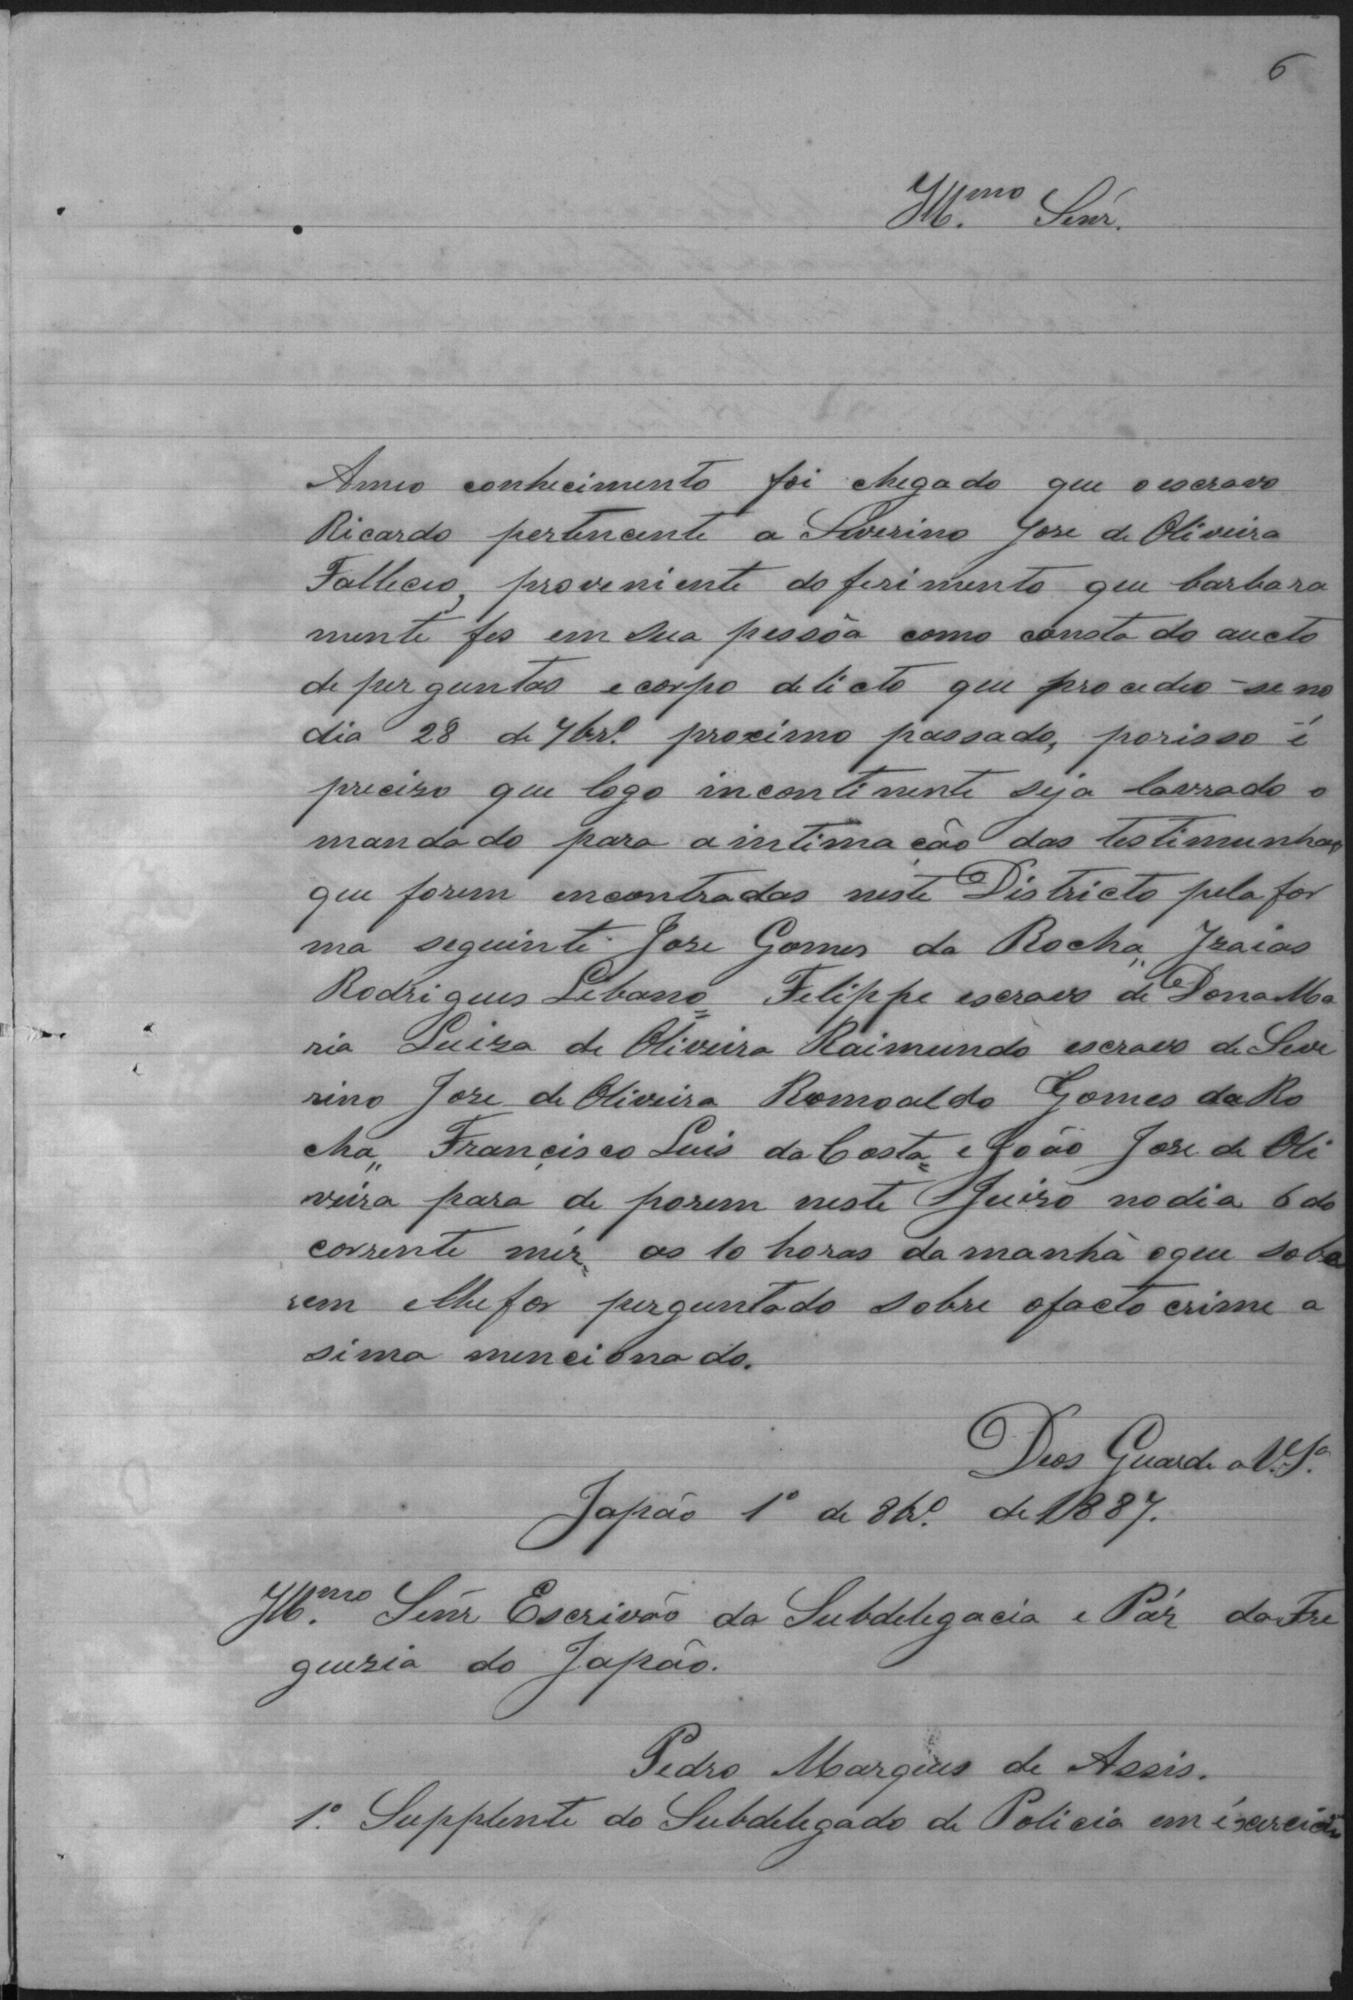 6
Illmo. Senr.
Ameo conhecimento foi chegado que oescravo
Ricardo pertencente a Severino Jose de Oliveira
Falleceo, proveniente do ferimento que barbara
mente fes em sua pessôa como consta do aucto
de perguntas e corpo delicto que procedeo-se no
dia 28 de 7brº. proximo passado, porisso é
precizo que logo incontinente seja lavrado o
mandado para aintimação das testimunhas
que forem encontradas neste Districto pela for
ma seguinte Jose Gomes da Rocha,, Izaias
Rodrigues Lebano= Felippe escravo de Dona Ma
ria Luiza de Oliveira Raimundo escravo de Seve
rino Jose de Oliveira Romoaldo Gomes da Ro
cha,, Francisco Luis da Costa= e João Jose de Oli
veira para de porem neste Juizo no dia 6 do
corrente mêz= as 10 horas da manhã oque sobe
rem elhe for perguntado sobre ofacto crime a
sima mencionado.
Deos Guarde a V. Sª.
Japão 1º de 8brº. de 1887.
Illmo. Senr Escrivão da Subdelegacia e Páz da Fre
guezia do Japão.
Pedro Marques de Assis.
1º. Supplente do Subdelegado de Policia em éxercicio